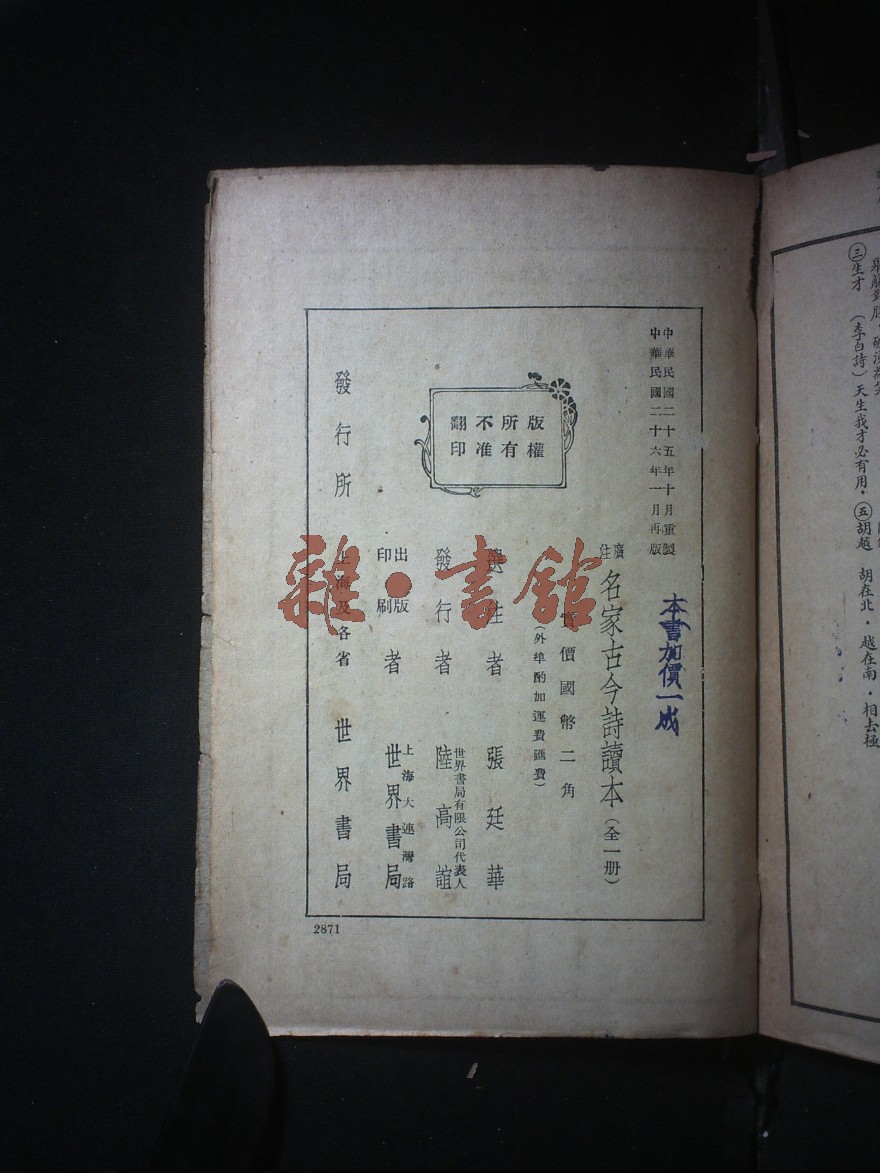 中華民國二十五年十月重製
中華民國二十六年一月再版
本書加價一成
廣註 名家古今詩讀本（全一册）
實價國幣二角
（外埠酌加運費匯費）
版權
所有
不准
翻印
選註者 張廷華
發行者 世界書局有限公司代表人
陸高誼
出版
印刷者 上海大連灣路
世界書局
發行所 上海及各省 世界書局
2871
雜·書館
㊂生才 （李白詩）天生我才必有用．㊄胡越 胡在北．越在南．相去極